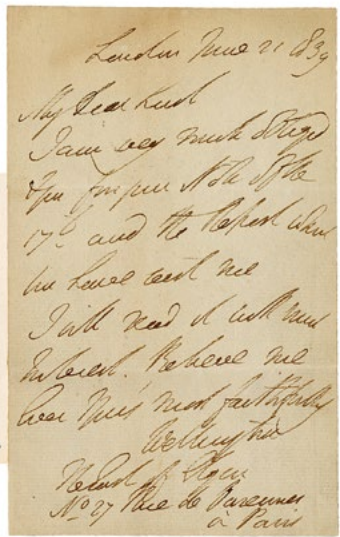 London June 21 1839
My Dear Lord
I am very much obliged
to you for your Note of the
17th and the Report which
you have sent me
I will read it with much
Interest. Believe me
Ever Yours most faithfully
Wellington
The Earl of Elgin
No 27 Rue de Varennes
à Paris